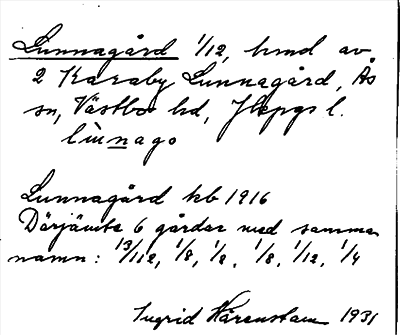 Lunnagård 1/12, hmd av
2 Karaby Lunnagård, Ås
sn, Västbo hd, Jkpgs l.
lùnago
Lunnagård kb 1916
Därjämte 6 gårdar med samma
namn: 13/112, 1/8, 1/2, 1/8, 1/12, 1/4
Ingrid Hårenstam 1931